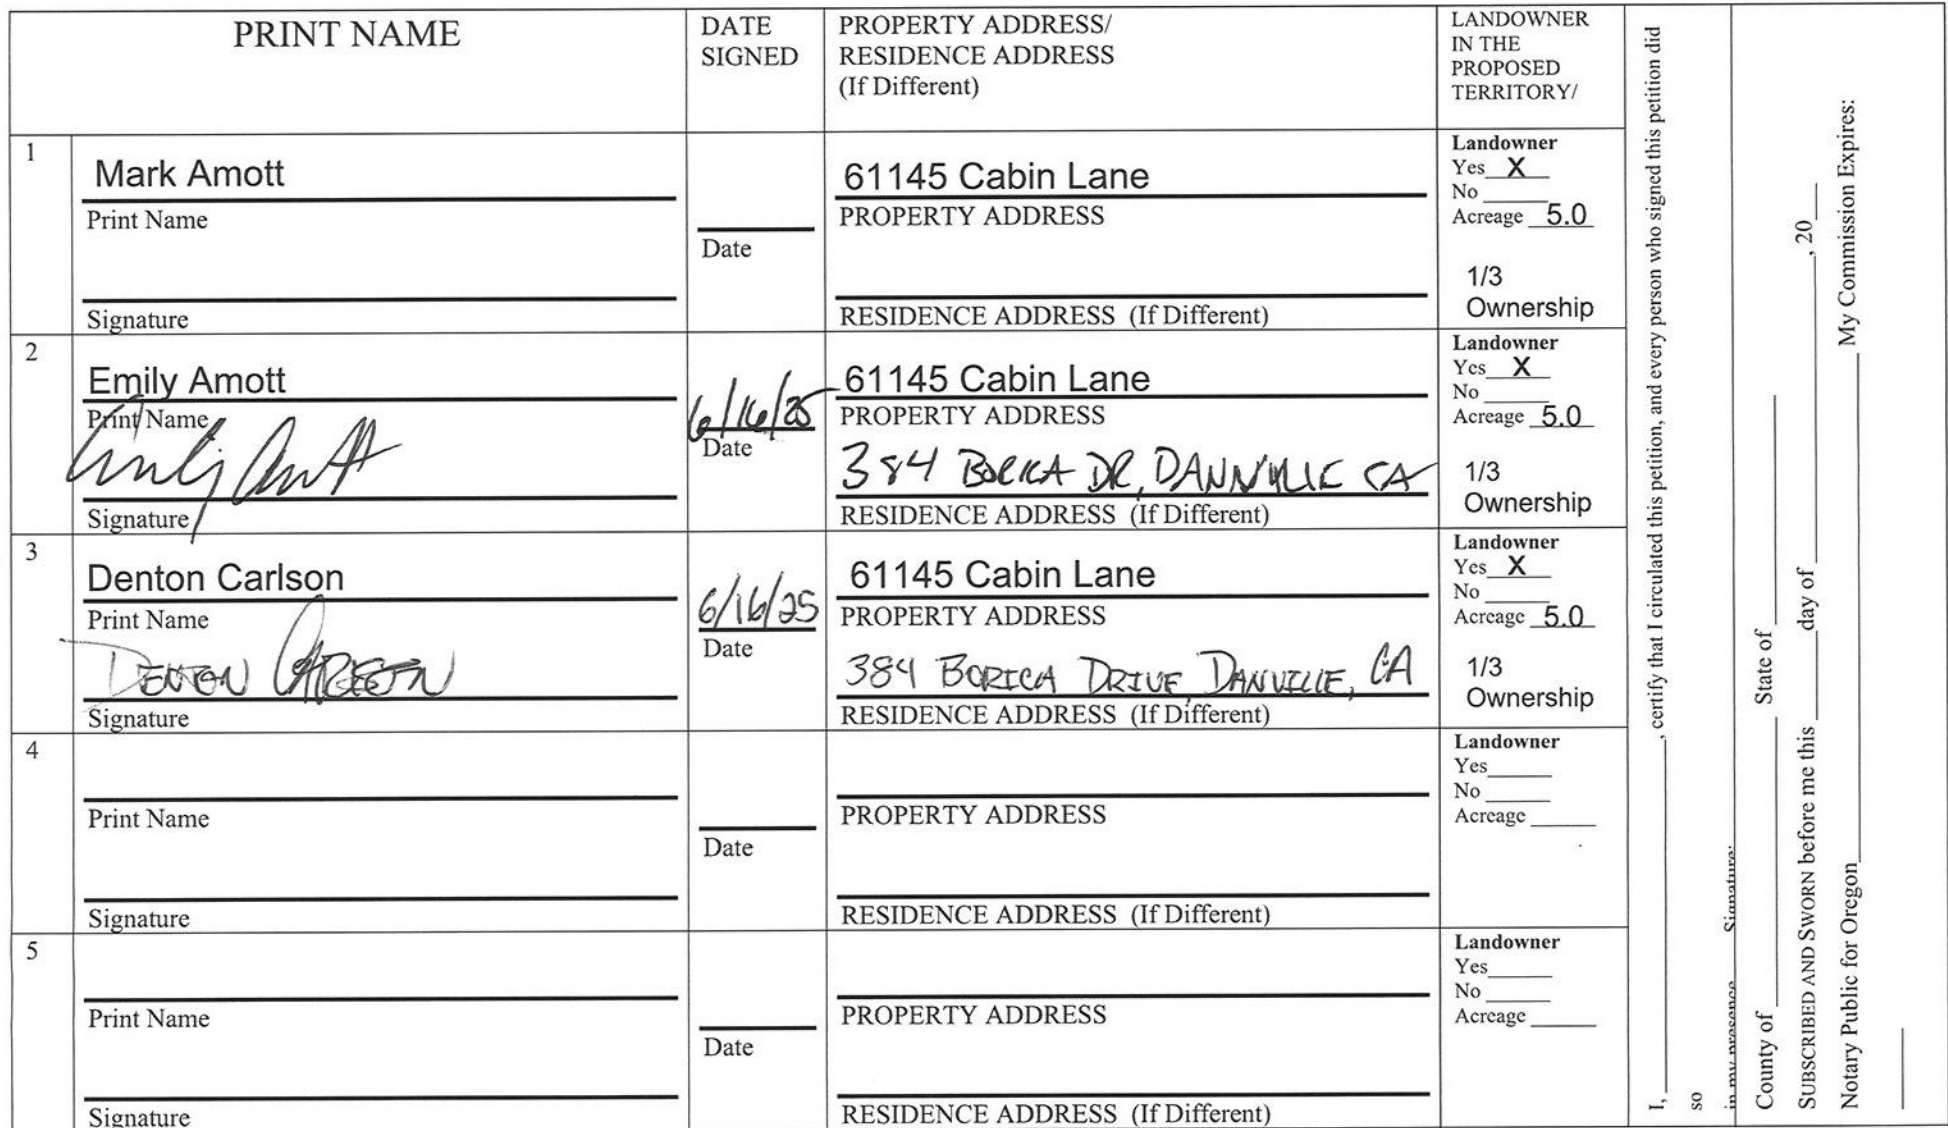 PRINT NAME
DATE
SIGNED
PROPERTY ADDRESS/
RESIDENCE ADDRESS
(If Different)
LANDOWNER
IN THE
PROPOSED
TERRITORY/
1
Mark Amott
Print Name
Signature
Date
61145 Cabin Lane
PROPERTY ADDRESS
RESIDENCE ADDRESS (If Different)
Landowner
Yes X
No
Acreage 5.0
1/3
Ownership
2
Emily Amott
Print Name
Emily Amott
Signature
6/16/25
Date
61145 Cabin Lane
PROPERTY ADDRESS
384 BORICA DR, DANNVILLE CA
RESIDENCE ADDRESS (If Different)
Landowner
Yes X
No
Acreage 5.0
1/3
Ownership
3
Denton Carlson
Print Name
DENTON CARLSON
Signature
6/16/25
Date
61145 Cabin Lane
PROPERTY ADDRESS
384 BORICA DRIVE, DANVILLE, CA
RESIDENCE ADDRESS (If Different)
Landowner
Yes X
No
Acreage 5.0
1/3
Ownership
4
Print Name
Signature
Date
PROPERTY ADDRESS
RESIDENCE ADDRESS (If Different)
Landowner
Yes
No
Acreage
5
Print Name
Signature
Date
PROPERTY ADDRESS
RESIDENCE ADDRESS (If Different)
Landowner
Yes
No
Acreage
I, , certify that I circulated this petition, and every person who signed this petition did
so
in my presence Signature:
County of State of
SUBSCRIBED AND SWORN before me this day of , 20
Notary Public for Oregon My Commission Expires: